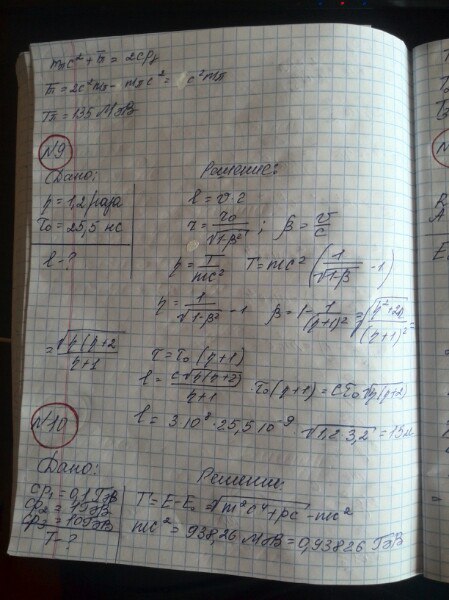 mπc² + T = 2cpγ
T = 2c²mπ - mπc² = c²mπ
Tπ = 135 МэВ
N9
Дано:
η = 1,2 раза
τ₀ = 25,5 нс
l - ?
Решение:
l = v·τ
τ = τ₀/√(1-β²) ; β = v/c
η = T/mc² T = mc² (1/√(1-β) - 1)
η = 1/√(1-β²) - 1 β = 1 - 1/(η+1)² = √(η²+2η)/(η+1)² =
= √(η(η+2)/η+1
τ = τ₀ (η+1)
l = c√η(η+2)/η+1 · τ₀(η+1) = cτ₀√η(η+2)
l = 3·10⁸·25,5·10⁻⁹·√1,2·3,2 = 15м
N10
Дано:
cp₁ = 0,1 ГэВ
cp₂ = 1 ГэВ
cp₃ = 10 ГэВ
T - ?
Решение:
T = E - E₀ = √m²c⁴ + pc - mc²
mc² = 938,26 МэВ = 0,93826 ГэВ